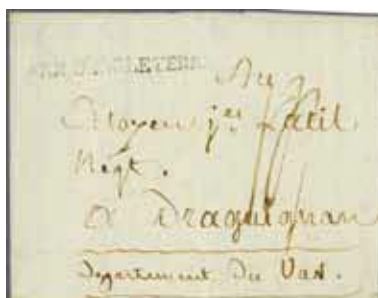 ARM. D'ANGLETERRE
Au
Citoyen j.er Latil
Negt.
a Draguignan
Departement Du Var.